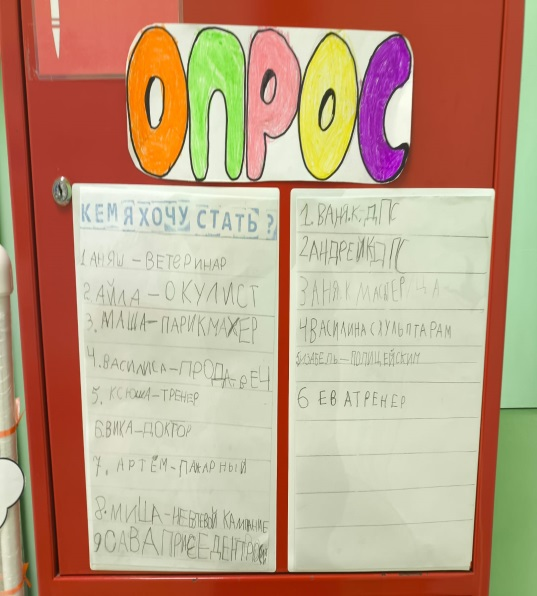 ОПРОС
КЕМ Я ХОЧУ СТАТЬ?
1 АНЯШ – ВЕТЕРИНАР
2 АЙЛА – ОКУЛИСТ
3. МАША – ПАРИКМАХЕР
4. ВАСИЛИСА – ПРОДАВЕЧ
5. КСЮША – ТРЕНЕР
6 ВИКА – ДОКТОР
7. АРТЁМ – ПАЖАРНЫЙ
8. МИША – КАМПАНИЕ
9 САВА
1. ВАНЯ.К. ДПС
2 АНДРЕЙ К ДПС
3 АНЯ.К
4 ВАСИЛИНА СКУЛЬПТАРАМ
5. – ПОЛИЦЕЙСКИМ
6 ЕВА ТРЕНЕР